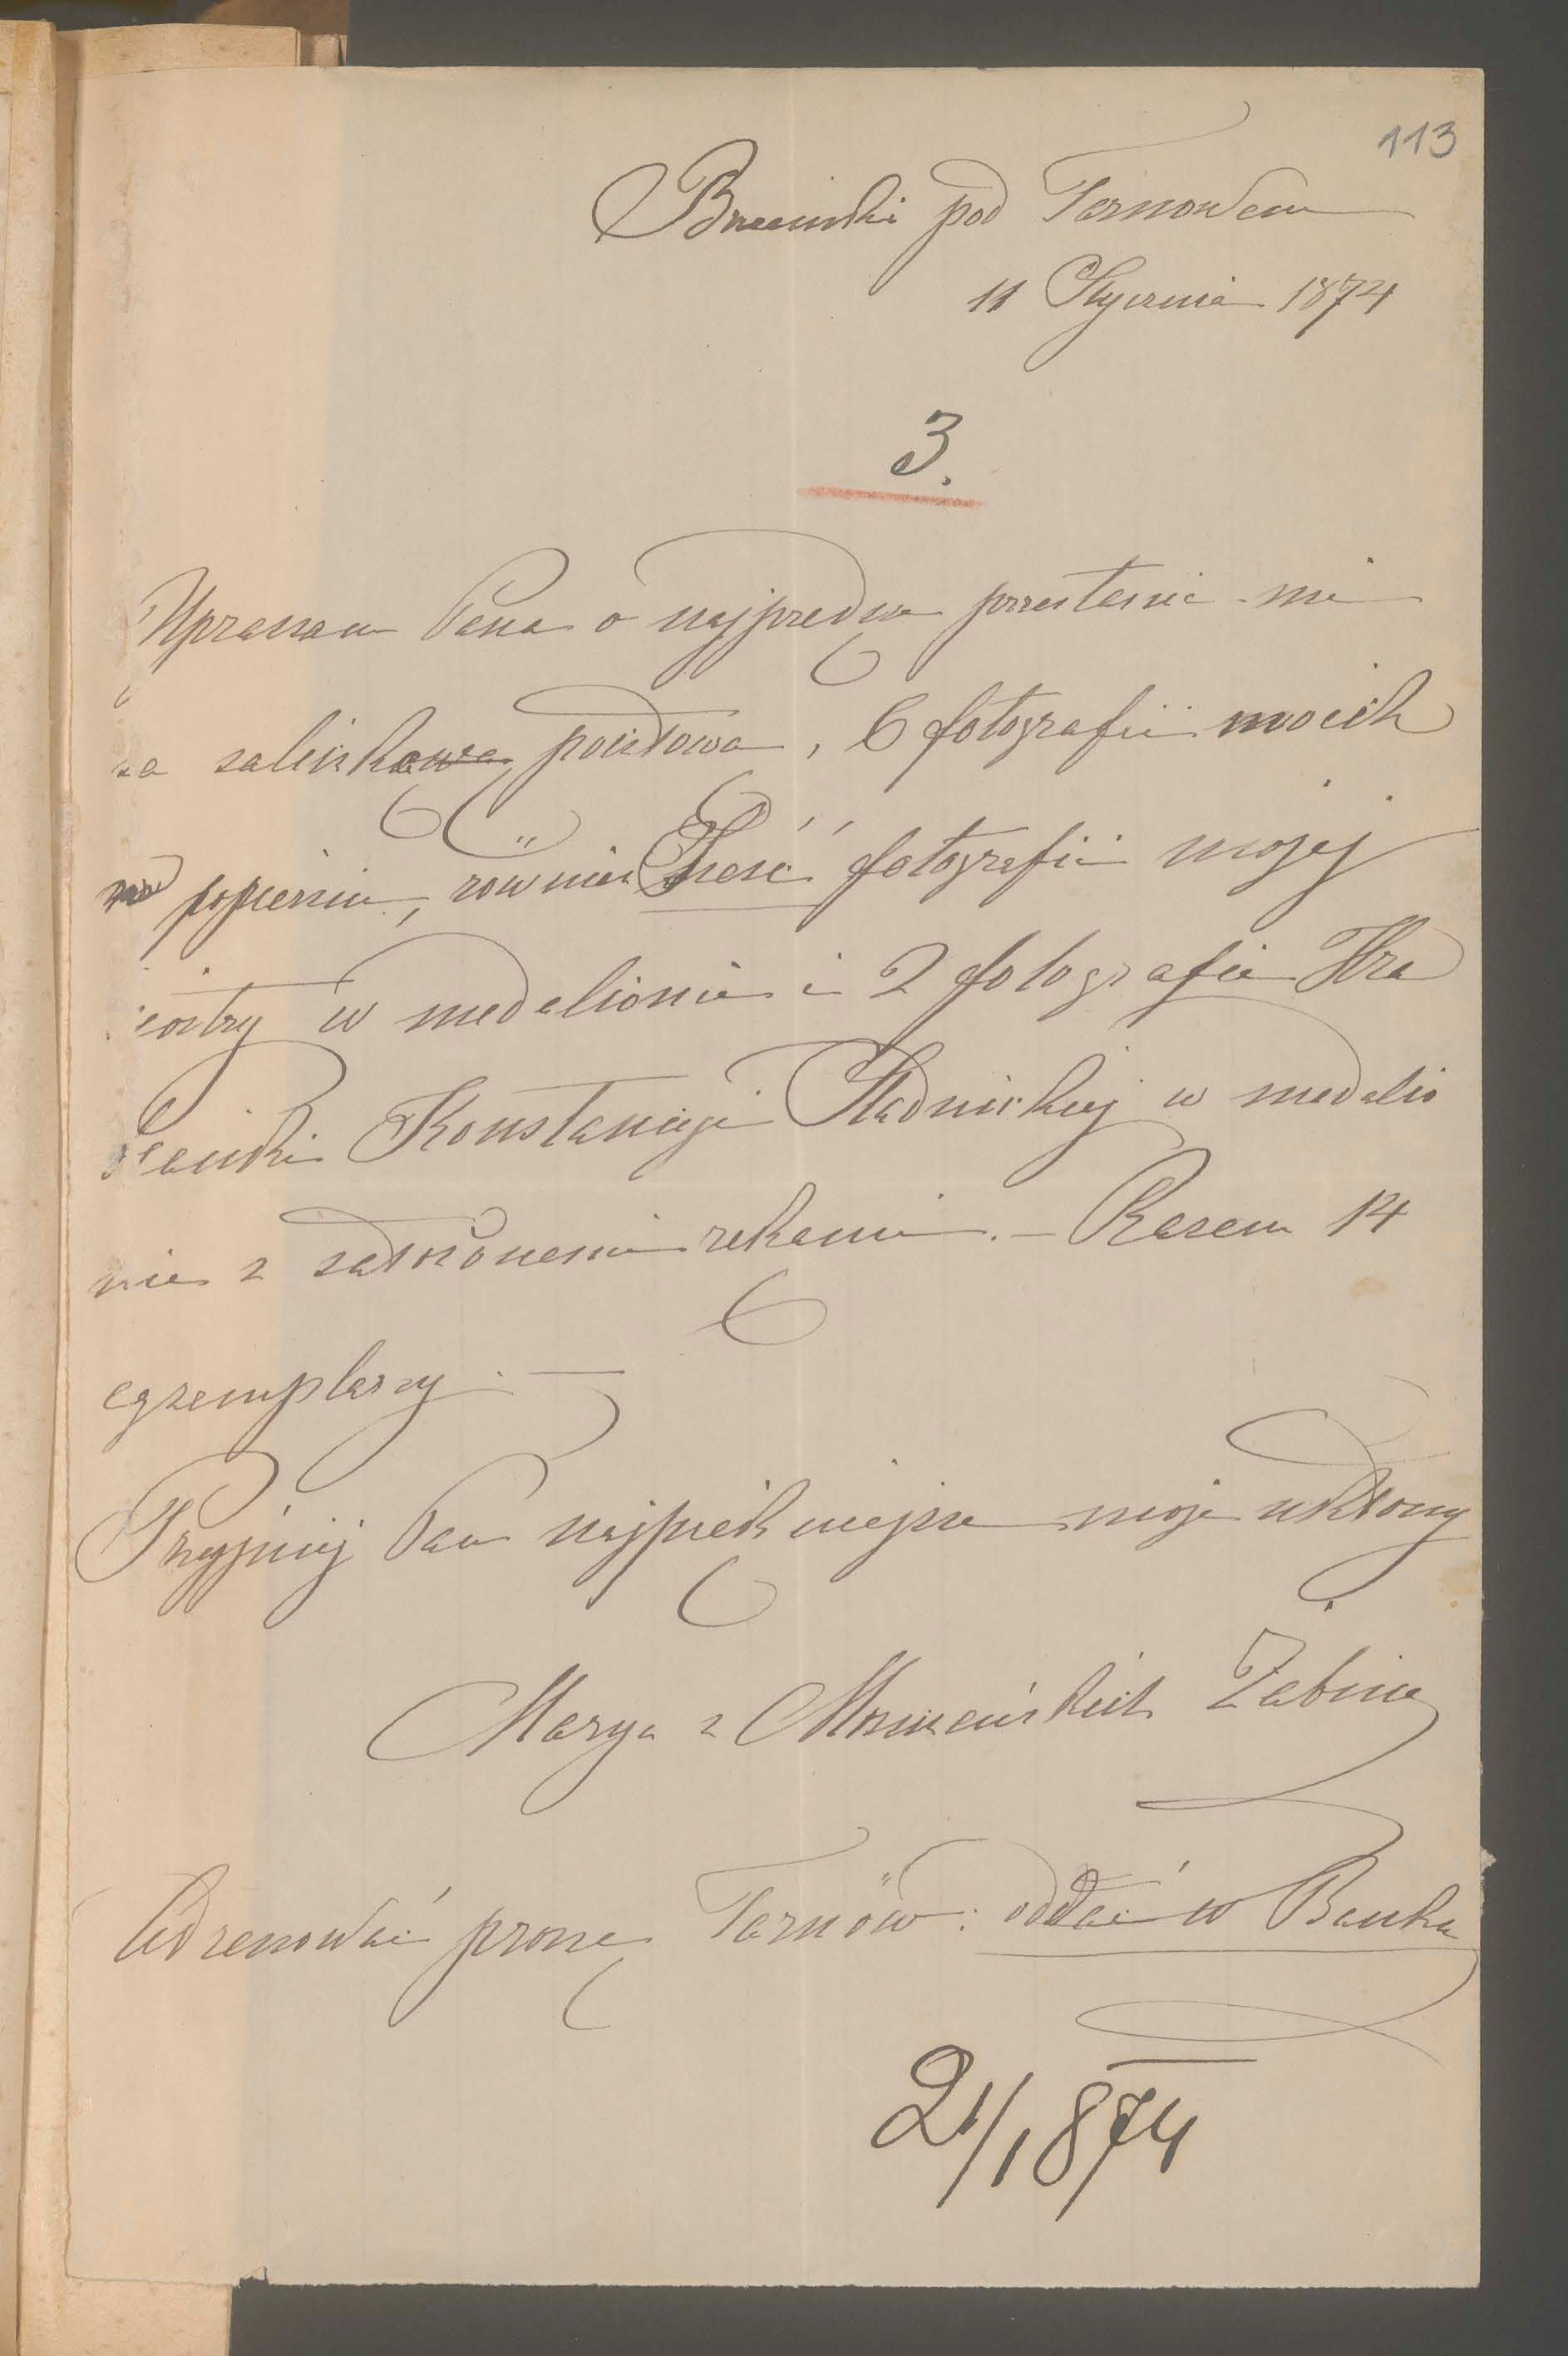 113
pod Tarnowem
11 Stycznia 1874
3.
Upraszam Pana o najprędsze przesłanie mi
za zaliczkową pocztową, 6 fotografii moich
popiersiu, również Sześć fotografii mojej
siostry w medalionie i 2 fotografie Hra
bianki Konstancyi Stadnickiej w medalio
nie z założonemi rękami. — Razem 14
egzemplarzy. —
Przyjmij Pan najpiękniejsze moje ukłony
Marya z Żabina
Adresować proszę Tarnów: oddać w Banku
21/1 874